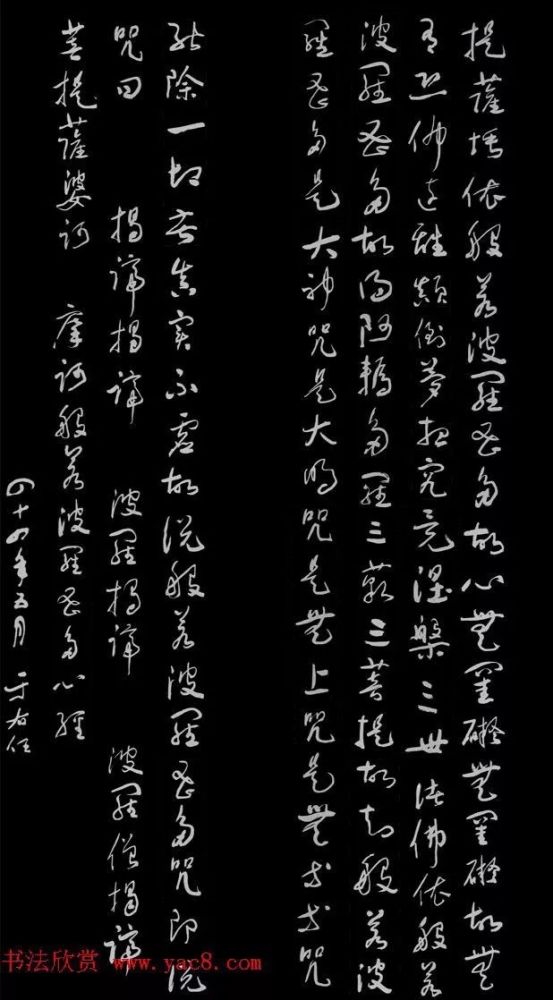 提薩埵依般若波羅蜜多故心無罣礙無罣礙故無
有恐怖遠離顛倒夢想究竟涅槃三世諸佛依般若
波羅蜜多故得阿耨多羅三藐三菩提故知般若波
羅蜜多是大神咒是大明咒是無上咒是無等等咒
能除一切苦真實不虛故說般若波羅蜜多咒即說
咒曰 揭諦揭諦 波羅揭諦 波羅僧揭諦
菩提薩婆訶 摩訶般若波羅蜜多心經
四十四年五月 于右任
书法欣赏 www.yac8.com